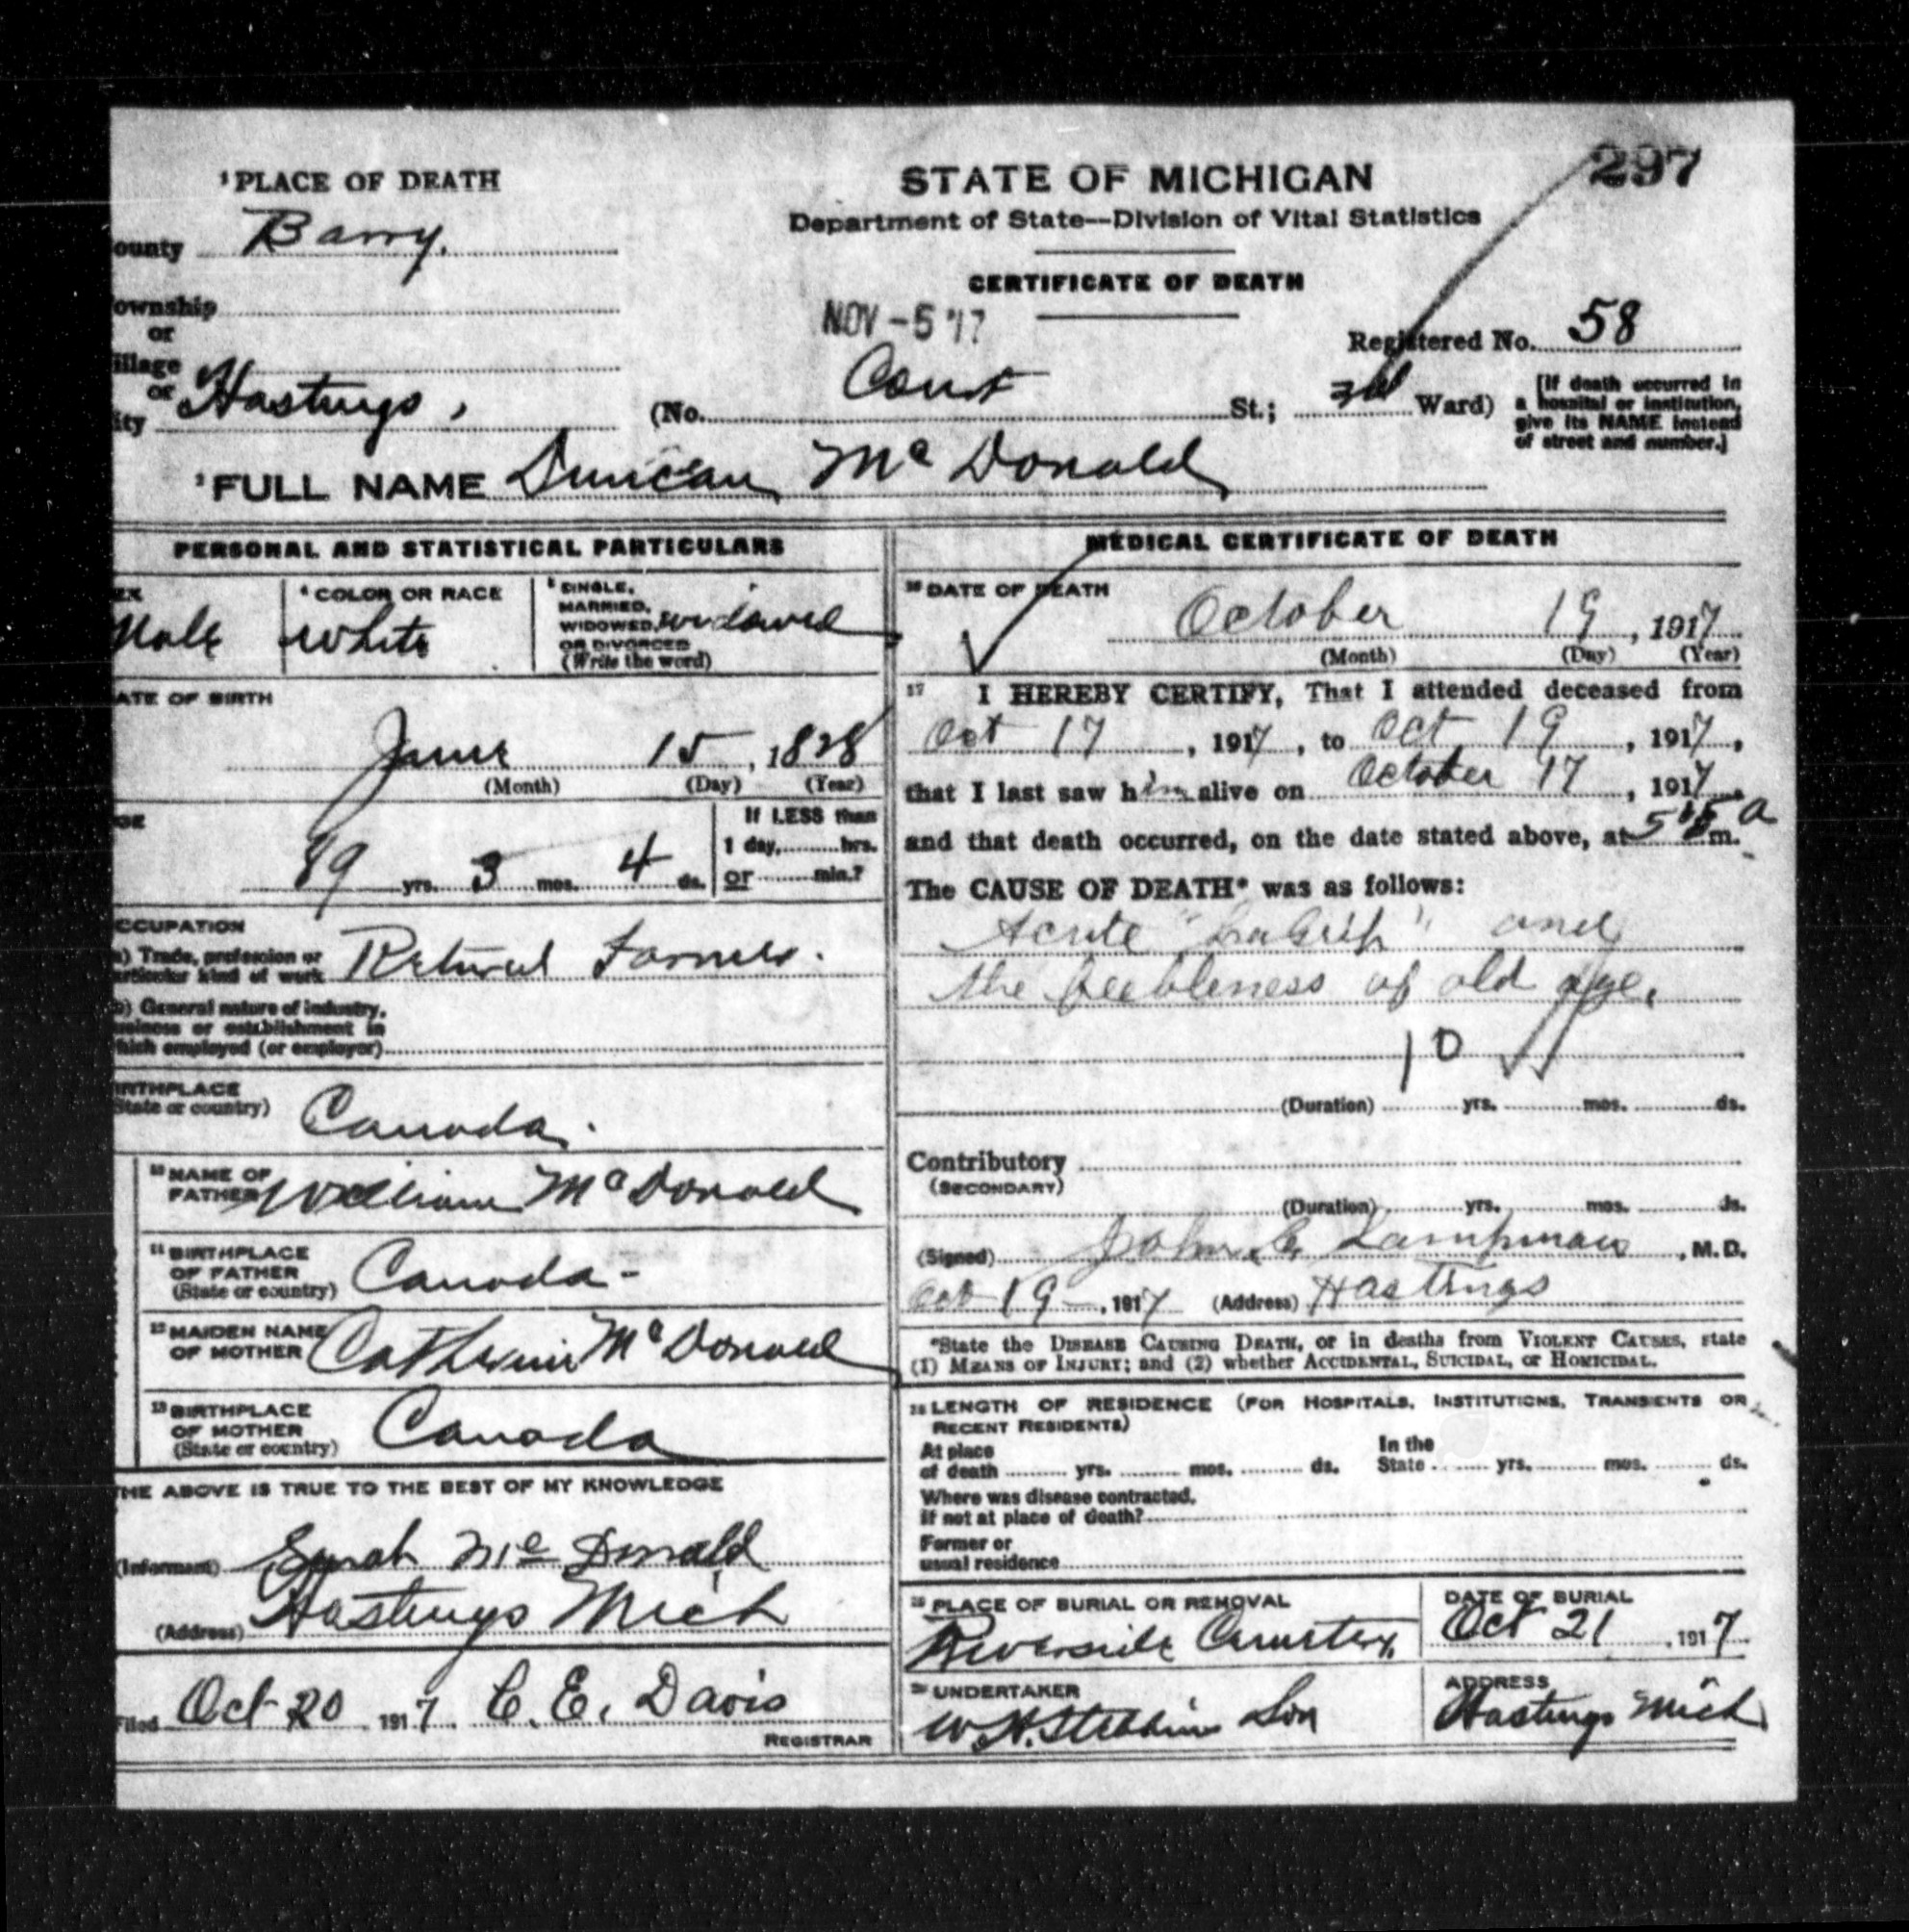 297
¹PLACE OF DEATH
STATE OF MICHIGAN
Department of State—Division of Vital Statistics
ounty Barry.
CERTIFICATE OF DEATH
ownship
or
NOV -5 '17
Registered No. 58
illage
or
ity Hastings, (No. Court St.; 3d Ward)
[If death occurred in
a hospital or institution,
give its NAME instead
of street and number.]
²FULL NAME Duncan McDonald
PERSONAL AND STATISTICAL PARTICULARS
EX
Male
⁴COLOR OR RACE
White
⁵SINGLE,
MARRIED,
WIDOWED,
OR DIVORCED
(Write the word)
widowed
ATE OF BIRTH
June 15, 1828
(Month) (Day) (Year)
GE
89 yrs. 3 mos. 4 ds.
If LESS than
1 day, hrs.
or min.?
CCUPATION
a) Trade, profession or
articular kind of work
Retired Farmer.
b) General nature of industry,
usiness or establishment in
hich employed (or employer)
IRTHPLACE
State or country)
Canada.
¹⁰NAME OF
FATHER
William McDonald
¹¹BIRTHPLACE
OF FATHER
(State or country)
Canada-
¹²MAIDEN NAME
OF MOTHER
Catherine McDonald
¹³BIRTHPLACE
OF MOTHER
(State or country)
Canada
THE ABOVE IS TRUE TO THE BEST OF MY KNOWLEDGE
(Informant) Sarah McDonald
(Address) Hastings Mich
Filed Oct 20 1917. C. E. Davis
REGISTRAR
MEDICAL CERTIFICATE OF DEATH
¹⁶DATE OF DEATH
October 19, 1917
(Month) (Day) (Year)
¹⁷ I HEREBY CERTIFY, That I attended deceased from
Oct 17, 1917, to Oct 19, 1917,
that I last saw him alive on October 17, 1917,
and that death occurred, on the date stated above, at m. a
The CAUSE OF DEATH* was as follows:
Acute "LaGrip" and
the feebleness of old age.
10
(Duration) yrs. mos. ds.
Contributory
(SECONDARY)
(Duration) yrs. mos. ds.
(Signed) John Lampman, M.D.
Oct 19-, 1917 (Address) Hastings
*State the DISEASE CAUSING DEATH, or in deaths from VIOLENT CAUSES, state
(1) MEANS OF INJURY; and (2) whether ACCIDENTAL, SUICIDAL, or HOMICIDAL.
¹⁸LENGTH OF RESIDENCE (FOR HOSPITALS, INSTITUTIONS, TRANSIENTS OR
RECENT RESIDENTS)
At place
of death yrs. mos. ds.
In the
State yrs. mos. ds.
Where was disease contracted,
if not at place of death?
Former or
usual residence
¹⁹PLACE OF BURIAL OR REMOVAL
Riverside Cemetery
DATE OF BURIAL
Oct 21, 1917
²⁰UNDERTAKER
W.H. Stebbins Son
ADDRESS
Hastings Mich